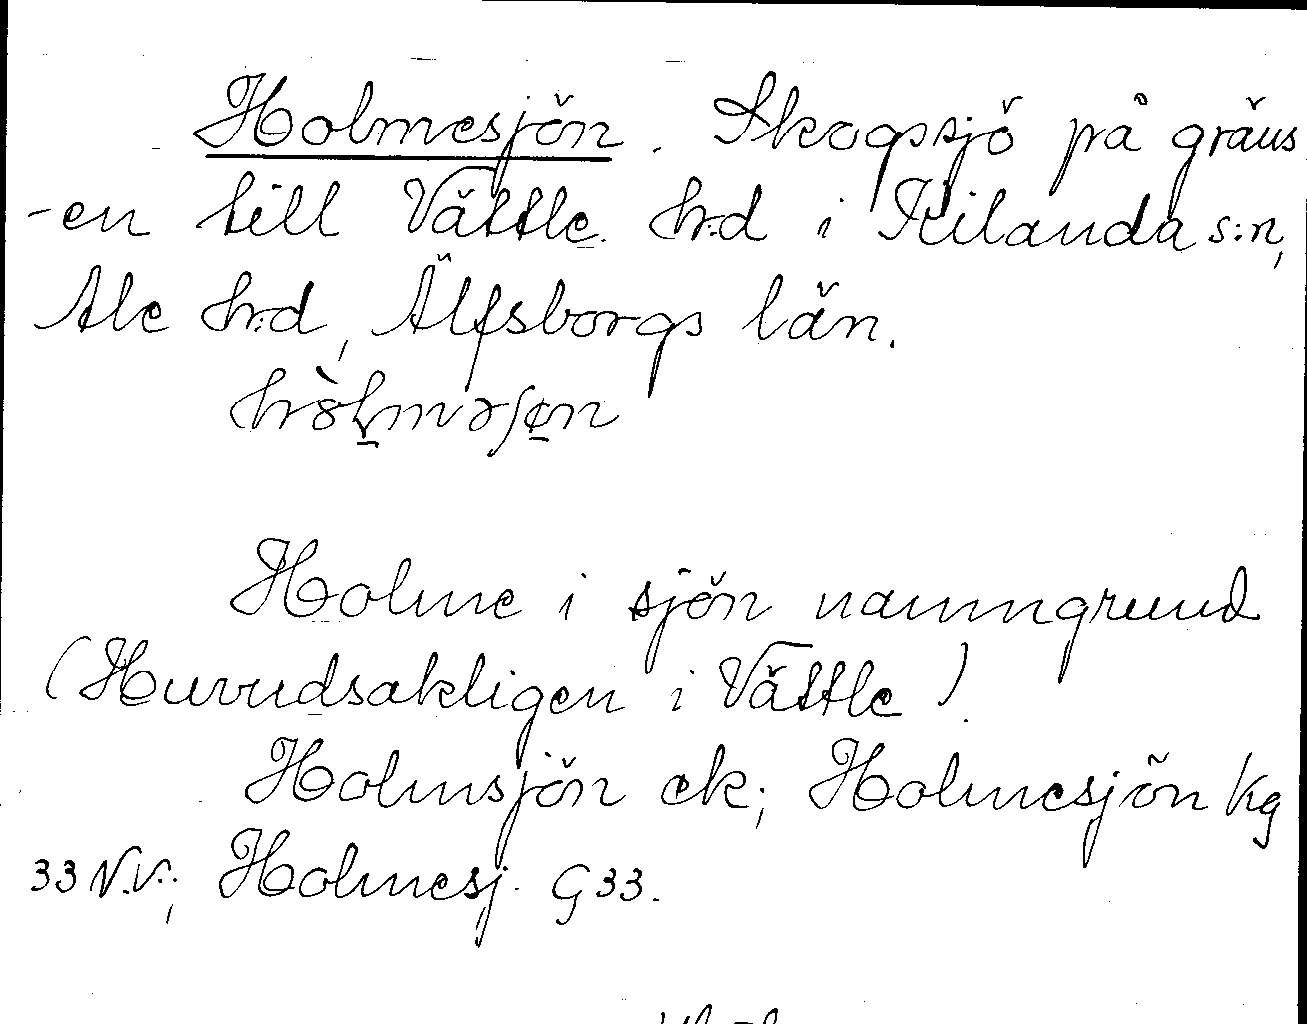 Holmesjön. Skogssjö på gräns
-en till Vättle h:d i Kilanda s:n,
Ale h:d, Älfsborgs län.
Holme i sjön namngrund
(Huvudsakligen i Vättle).
Holmsjön ek; Holmesjön Kg
33 N.V.; Holmesj. G 33.